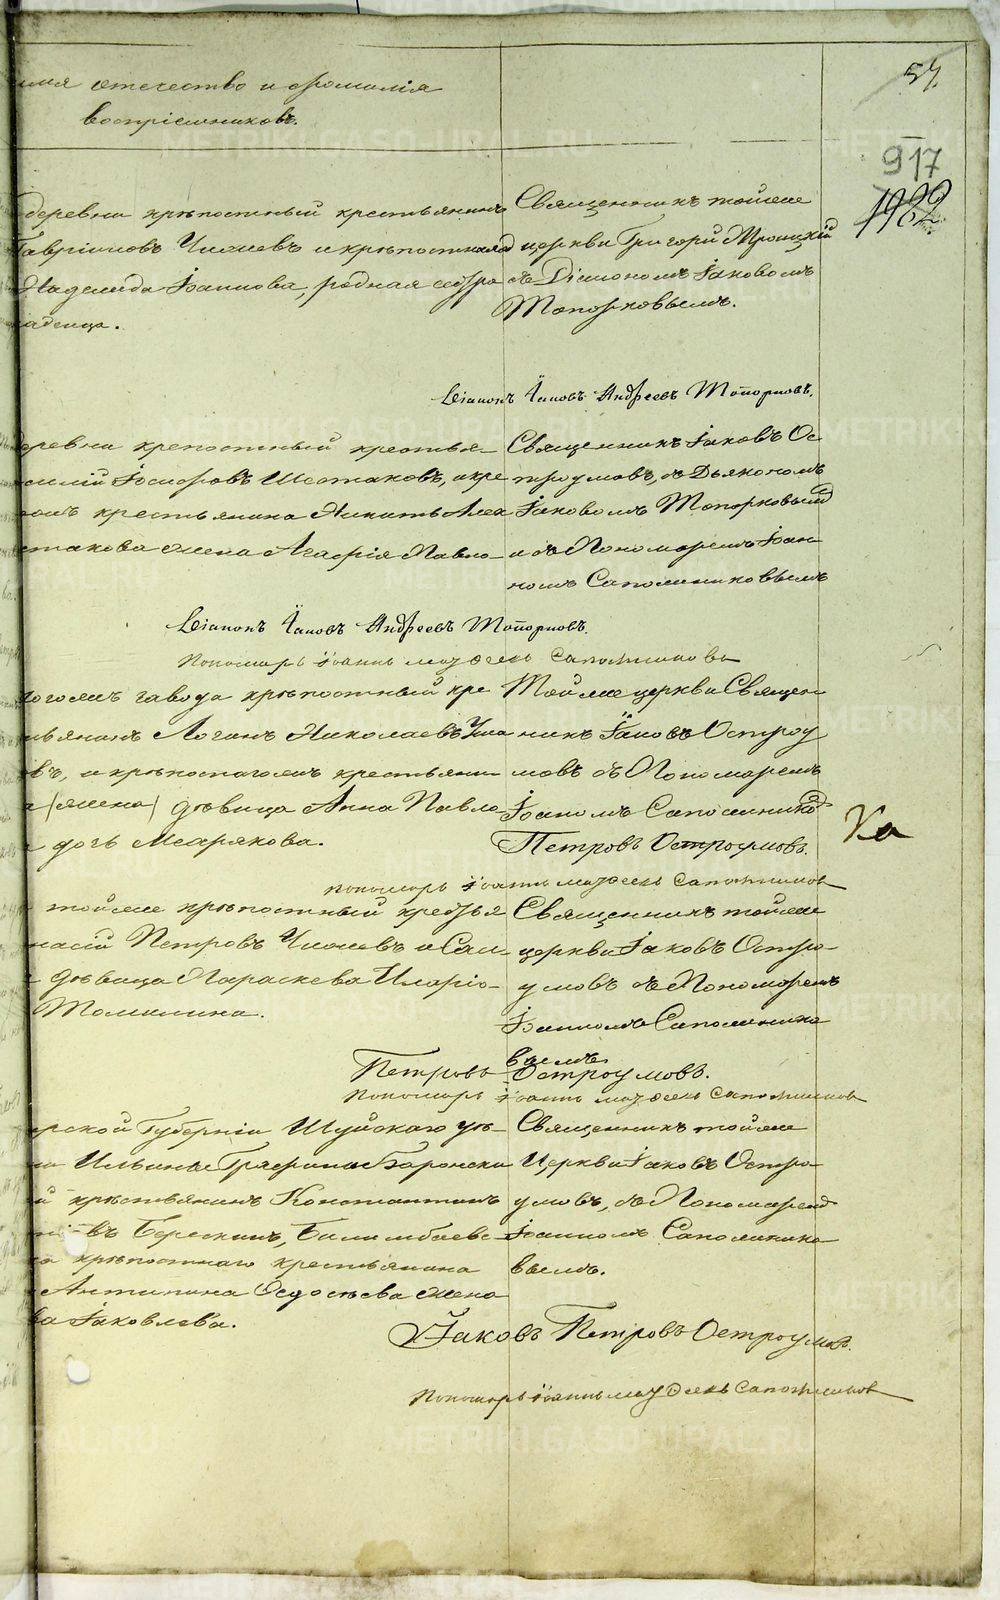 57.
имя отечество и фамилія
воспріемниковъ.
917
1982
деревни крѣпостный крестьянинъ
Гавріиловъ Чижевъ и крѣпостная
Надежда Іоаннова, родная сестра
младенца.
Священникъ тойже
церкви Григорій Троицкій
съ Діакономъ Іаковомъ
Топорковымъ.
Діаконъ Іаковъ Андреевъ Топорковъ.
деревни крепостный крестья-
Шестаковъ, и кре
крестьянина Никиты Алек
жена Агафія Павло-
Священникъ Іаковъ Ос-
троумовъ, съ Дьякономъ
Іаковомъ Топорковымъ
и съ Пономаремъ Іоан-
номъ Сапожниковымъ
Діаконъ Іаковъ Андреевъ Топорковъ.
пономарь Іоаннъ Сапожниковъ
завода крѣпостный кре
Логинъ Николаевъ
и крѣпостнагожъ крестьяни
(жена) дѣвица Анна Павло
дочь Меарякова.
Тойже церкви Священ-
никъ Іаковъ Остроу
мовъ съ Пономаремъ
Іоаномъ Сапожнико
Петровъ Остроумовъ.
пономарь Іоаннъ Сапожниковъ
тойже крѣпостный крестья
Петровъ Чижевъ и
дѣвица Параскева Иларіо-
Томилина.
Священникъ тойже
церкви Іаковъ Остро-
умовъ съ Пономаремъ
Іоанномъ Сапожнико
вымъ
Петровъ Остроумовъ.
пономарь Іоаннъ Сапожниковъ
Губерніи Шуйскаго уѣ-
крѣстьянинъ Константинъ
въ Берескинъ, Билимбаевс
крѣпостнаго крестьянина
Антипина Федосѣева жена
Іаковлева.
Священникъ тойже
Церкви Іаковъ Остро-
умовъ, съ Пономаремъ
Іоанномъ Сапожнико
вымъ.
Іаковъ Петровъ Остроумовъ.
пономарь Іоаннъ Сапожниковъ
METRIKI.GASO-URAL.RU